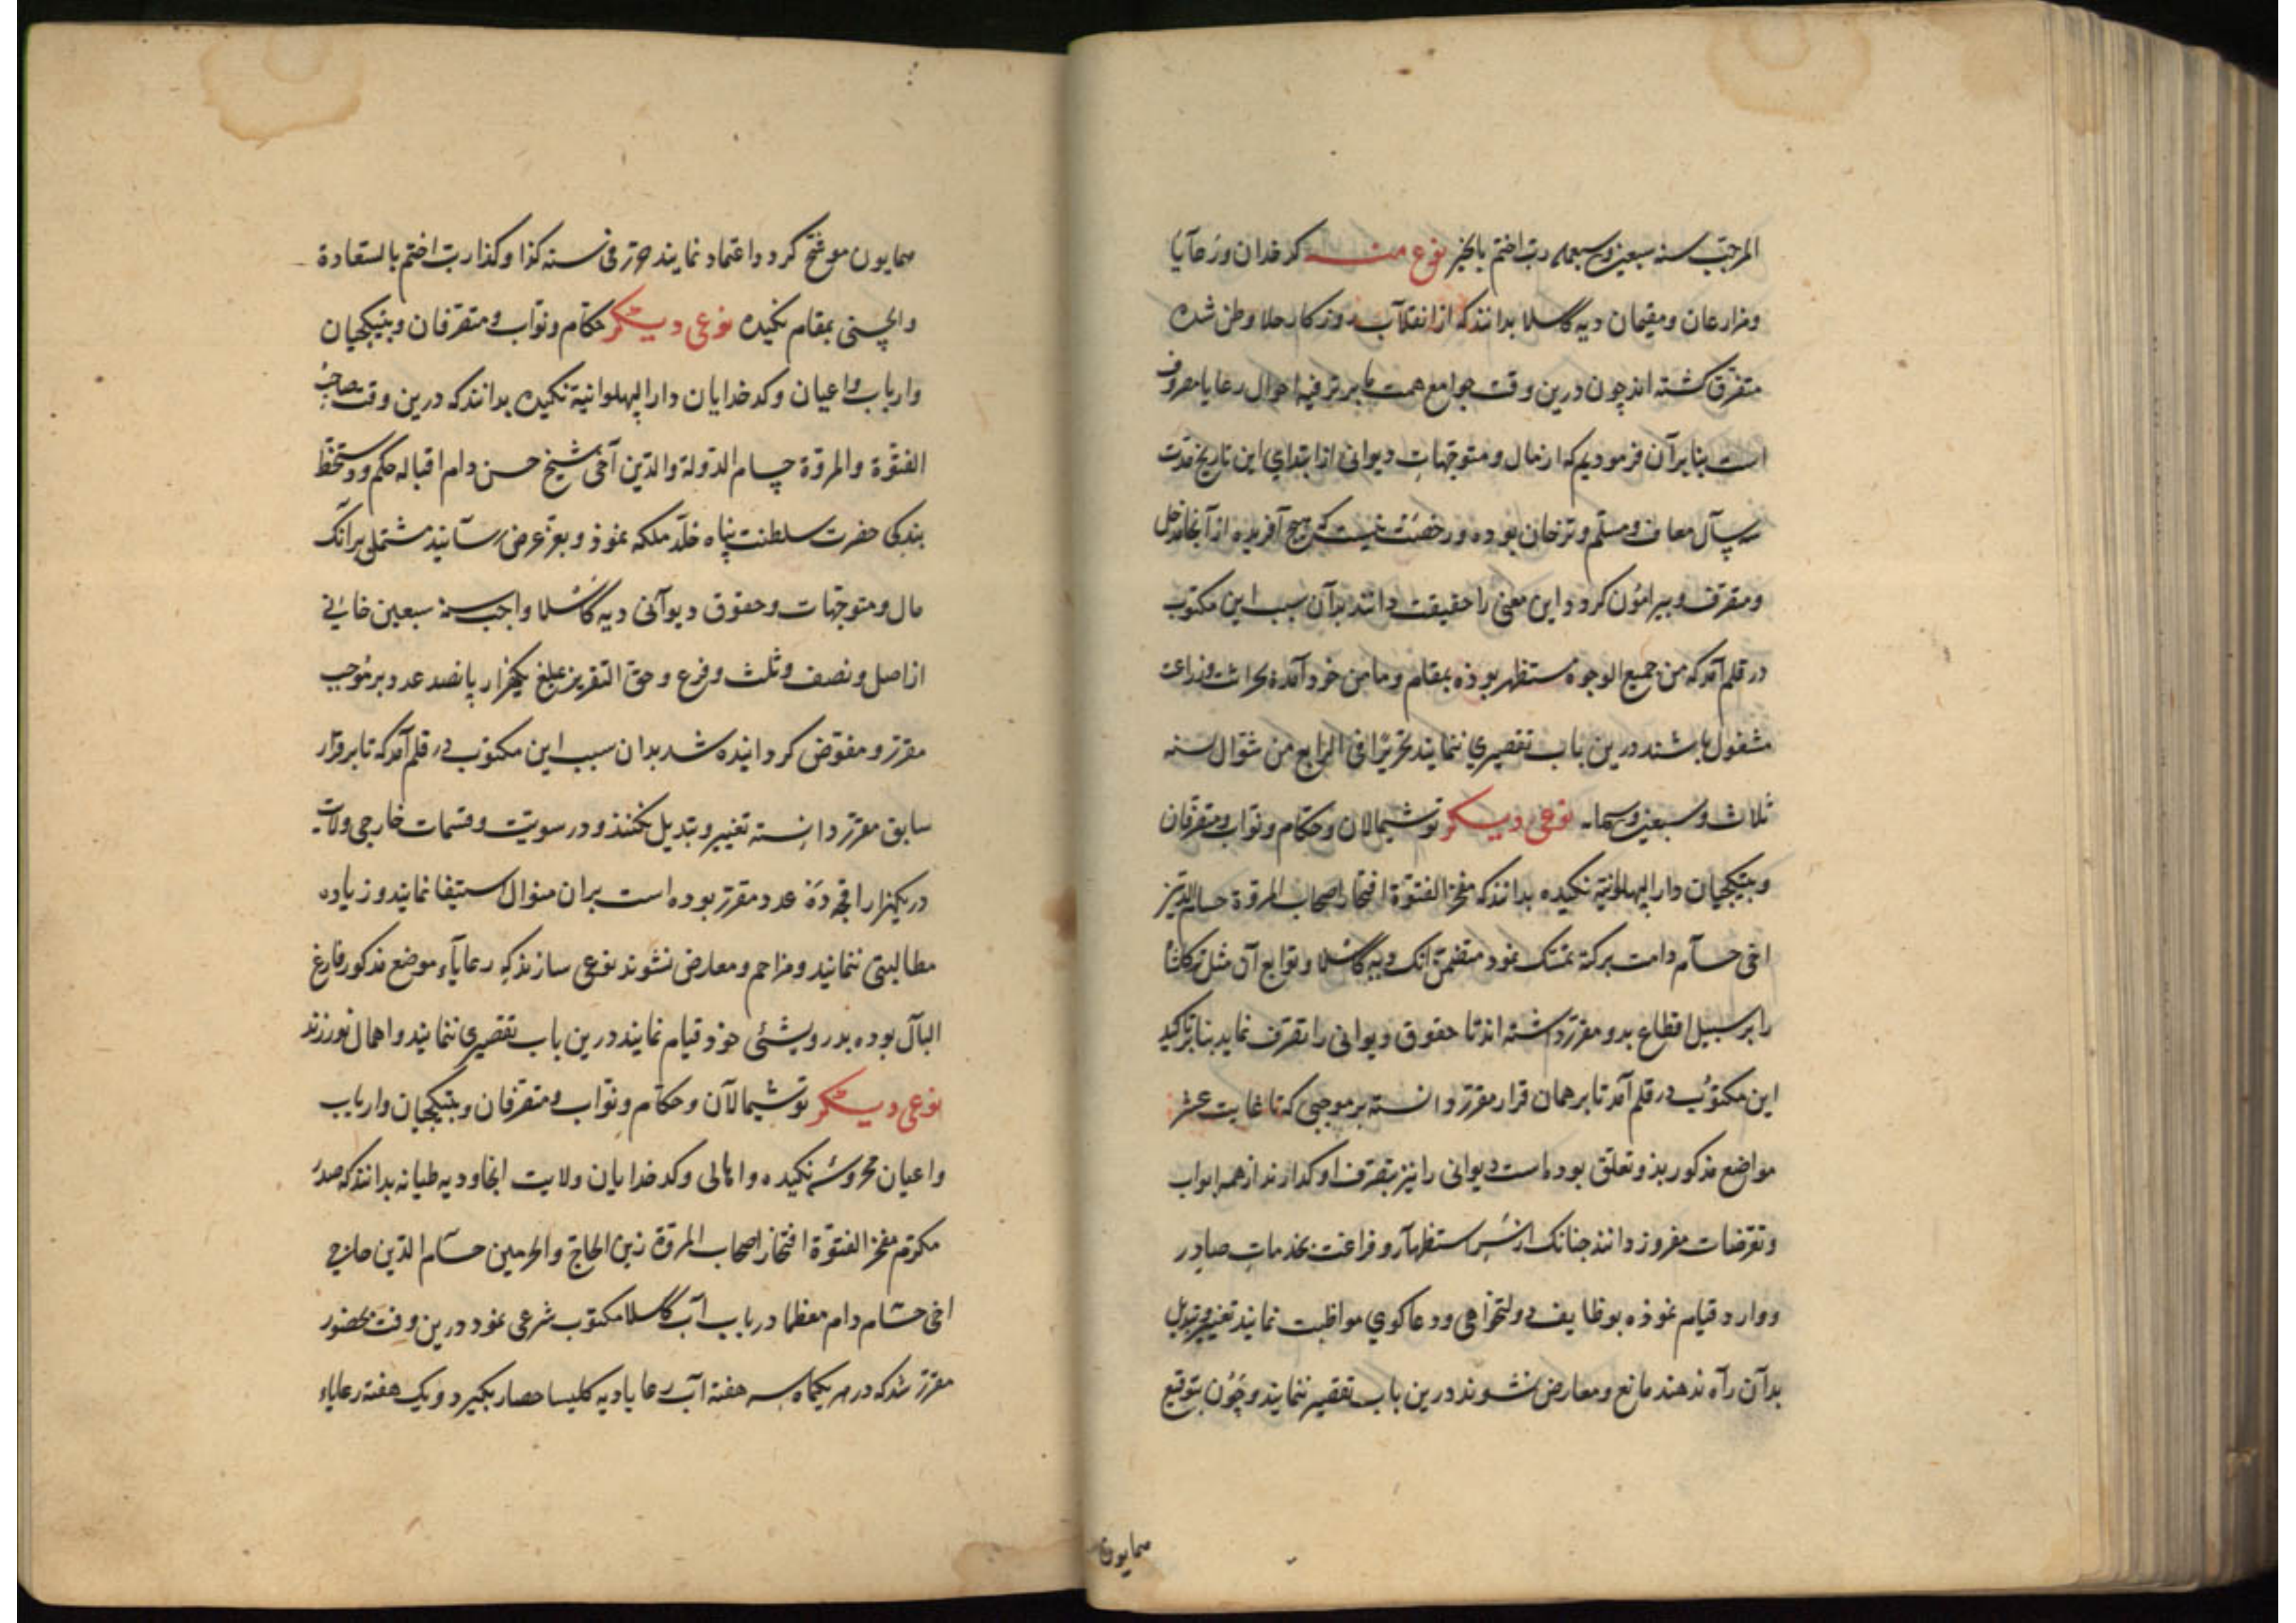 المرجب سنه سبعین وسبعمایه رب اختم بالخیر نوع منه کدخدایان ورعایا
ومزارعان ومقیمان دیه گاسلا بدانند که از انقلاب روزکار جلا وطن شده
متفرق کشته اند چون درین وقت جوامع همت ما بر ترفیه احوال رعایا مصروف
است بنابرآن فرمودیم که از مال ومتوجهات دیوانی از ابتدای این تاریخ مدت
سه سال معاف ومسلم وترخان بوده ورخصت نیست که هیچ آفریده از آنجا مدخل
ومتصرف وپیرامون کردد این معنی را حقیقت دانند بدآن سبب این مکتوب
در قلم آمد که من جمیع الوجوه مستظهر بوذه بمقام ومامن خود آمده بحراثت وزراعت
مشغول باشند درین باب تقصیری ننمایند تحریرا فی الرابع من شوال سنه
ثلاث وسبعین وسبعمایه نوعی دیکر توشمالان وحکام ونواب ومتصرفان
وبیتکچیان دار البهلوانیة نکیده بدانند که مفخر الفتوة افتخار اصحاب المروة حسام الدین
اخی حسام دامت برکته تمسک نمود متضمن آنک دیه گاسلا وتوابع آن مثل
را بر سبیل اقطاع بدو مقرر داشته اند تا حقوق دیوانی را تصرف نماید بنا بر تاکید
این مکتوب در قلم آمد تا بر همان قرار مقرر دانسته بر موجبی که تا غایت عشر
مواضع مذکور بذو تعلق بوده است دیوانی را نیز بتصرف او کذارند از همه ابواب
وتعرضات مفروز دانند چنانک از سر استظهار وفراغت بخدمات صادر
ووارد قیام نموذه بوظایف دولتخواهی ودعاکوی مواظبت نمایند تغییر وتبدیل
بدآن رآه ندهند مانع ومعارض نشوند درین باب تقصیر ننمایند وچون بتوقیع
همایون
همایون موشح کردد اعتماد نمایند حرر فی سنه کذا وکذا رب اختم بالسعادة
والحسنی بمقام نکیده نوعی دیکر حکام ونواب ومتصرفان وبیتکچیان
وارباب واعیان وکدخدایان دار البهلوانیة نکیده بدانند که درین وقت صاحب
الفتوة والمروة حسام الدولة والدین آخی شیخ حسن دام اقباله حکم ودستخط
بندکی حضرت سلطنت پناه خلد ملکه نموذ وبعز عرض رسانید مشتمل برآنک
مال ومتوجهات وحقوق دیوآنی دیه گاسلا واجب سنه سبعین خانی
از اصل ونصف وثلث وفرع وحق التقریر بمبلغ یکهزار پانصد عدد بر موجب
مقرر ومفوض کردانیده شد بدان سبب این مکتوب در قلم آمد که تا بر قرار
سابق مقرر دانسته تغییر وتبدیل نکنند ودر سویت وقسمات خارجی ولایت
در یکهزار اقچه ده عدد مقرر بوده است بران منوال استیفا نمایند وزیاده
مطالبتی ننمایند ومزاحم ومعارض نشوند نوعی سازند که رعایآء موضع مذکور فارغ
البآل بوده بدرویشئی خوذ قیام نمایند درین باب تقصیری ننمایند واهمال نورزند
نوعی دیکر توشمالآن وحکام ونواب ومتصرفان وبیتکچیان وارباب
واعیان محروسه نکیده واهالی وکدخدایان ولایت انجاو دیه طیانه بدانند که صدر
مکرم مفخر الفتوة افتخار اصحاب المروة زین الحاج والحرمین حسام الدین حاجی
اخی حسام دام معظما در باب آب گاسلا مکتوب شرعی نمود درین وقت بحضور
مقرر شد که در هر یکماه سه هفته آب رعایا دیه کلیسا حصار بکیرد ویک هفته رعایاء